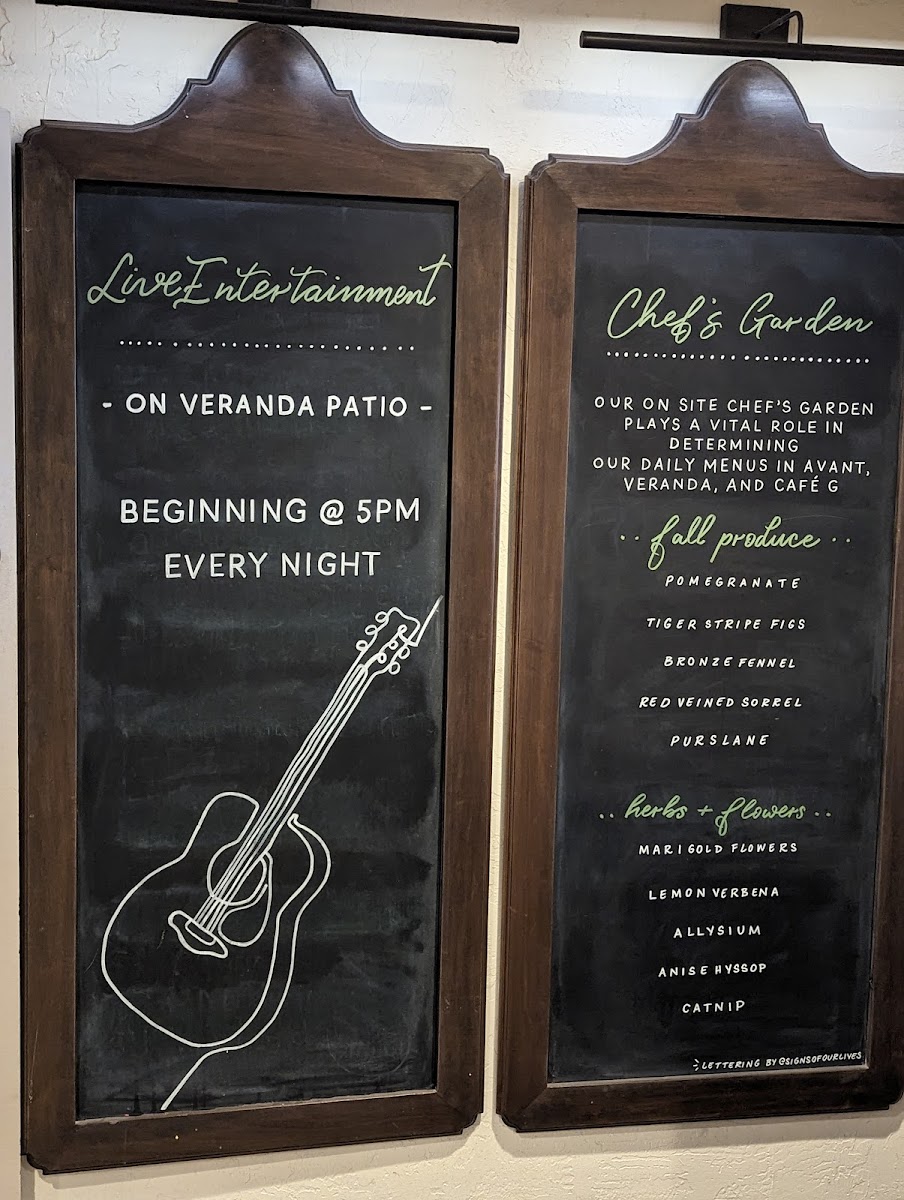 Live Entertainment
- ON VERANDA PATIO -
BEGINNING @ 5PM
EVERY NIGHT
Chef's Garden
OUR ON SITE CHEF'S GARDEN
PLAYS A VITAL ROLE IN
DETERMINING
OUR DAILY MENUS IN AVANT,
VERANDA, AND CAFÉ G
.. fall produce ..
POMEGRANATE
TIGER STRIPE FIGS
BRONZE FENNEL
RED VEINED SORREL
PURSLANE
.. herbs + flowers ..
MARIGOLD FLOWERS
LEMON VERBENA
ALLYSIUM
ANISE HYSSOP
CATNIP
LETTERING BY @SIGNSOFOURLIVES